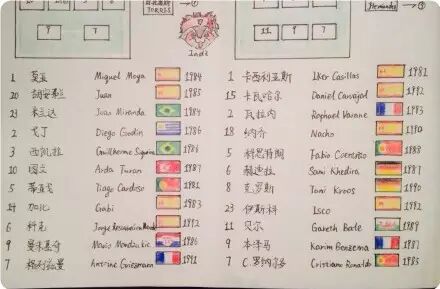 TORRES
Indi
9 7
11 9
1 莫亚 Miguel Moya 1984
20 胡安弗兰 Juan 1985
23 米兰达 Joao Miranda 1984
2 戈丁 Diego Godin 1986
3 西凯拉 Guilherme Siqueira 1986
10 图兰 Arda Turan 1987
5 蒂亚戈 Tiago Cardoso 1981
14 加比 Gabi 1983
6 科克 1992
9 曼朱基奇 Mario Mandzukic 1986
7 格列兹曼 Antoine Griezmann 1991
1 卡西利亚斯 Iker Casillas 1981
15 卡瓦哈尔 Daniel Carvajal 1992
2 瓦拉内 Raphael Varane 1993
18 纳乔 Nacho 1990
5 科恩特朗 Fabio Coentrao 1988
6 赫迪拉 Sami Khedira 1987
8 克罗斯 Toni Kroos 1990
23 伊斯科 Isco 1992
11 贝尔 Gareth Bale 1989
9 本泽马 Karim Benzema 1987
7 C.罗纳尔多 Cristiano Ronaldo 1985